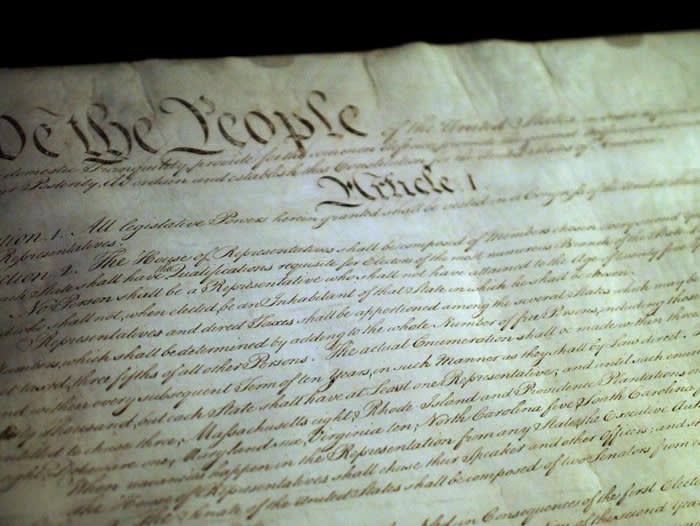 We the People of the United States
domestic Tranquility, provide for the common defence,
Posterity, do ordain and establish this Constitution
Article I
1. All legislative Powers herein granted shall be vested in a Congress of the United
Representatives.
2. The House of Representatives shall be composed of Members chosen every
State shall have the Qualifications requisite for Electors of the most numerous Branch of the State
No Person shall be a Representative who shall not have attained to the Age of twenty five
who shall not, when elected, be an Inhabitant of that State in which he shall be chosen.
Representatives and direct Taxes shall be apportioned among the several States which may
Numbers, which shall be determined by adding to the whole Number of free Persons, including those
three fifths of all other Persons. The actual Enumeration shall be made within three
within every subsequent Term of ten Years, in such Manner as they shall by Law direct.
Thousand, but each State shall have at Least one Representative; and until such
to chuse three, Massachusetts eight, Rhode Island and Providence Plantations
eight, Delaware one, Maryland six, Virginia ten, North Carolina five, South Carolina
When vacancies happen in the Representation from any State, the Executive
the House of Representatives shall chuse their Speaker and other Officers; and
The Senate of the United States shall be composed of two Senators from
in Consequence of the first
of the second Year